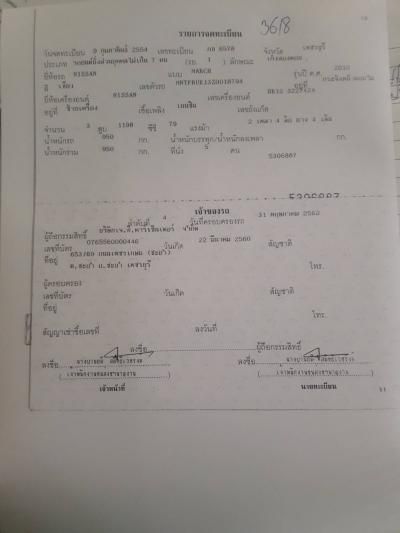 18
รายการจดทะเบียน 3618
วันจดทะเบียน 9 กุมภาพันธ์ 2554 เลขทะเบียน กธ 8578 จังหวัด เพชรบุรี
ประเภท รถยนต์นั่งส่วนบุคคลไม่เกิน 7 คน (รย. 1 ) ลักษณะ เก๋งสองตอน
ยี่ห้อรถ NISSAN แบบ MARCH รุ่นปี ค.ศ. 2010
สี เทา เลขตัวรถ อยู่ที่
ยี่ห้อเครื่องยนต์ NISSAN เลขเครื่องยนต์
อยู่ที่ เชื้อเพลิง เบนซิน เลขถังแก๊ส
จำนวน 3 สูบ 1198 ซีซี 79 แรงม้า 2 เพลา 4 ล้อ ยาง 4 เส้น
น้ำหนักรถ 950 กก. น้ำหนักบรรทุก/น้ำหนักลงเพลา กก.
น้ำหนักรวม 950 กก. ที่นั่ง 5 คน
5306887
5306887
เจ้าของรถ
ลำดับที่ 4 วันที่ครอบครองรถ 31 พฤษภาคม 2562
ผู้ถือกรรมสิทธิ์
เลขที่บัตร 0765560000446 วันเกิด 22 มีนาคม 2560 สัญชาติ
ที่อยู่ 653/69 ถนนเพชรเกษม (ชะอำ)
ต.ชะอำ อ.ชะอำ เพชรบุรี โทร.
ผู้ครอบครอง
เลขที่บัตร วันเกิด สัญชาติ
ที่อยู่
โทร.
สัญญาเช่าซื้อเลขที่ ลงวันที่
ลงชื่อ ผู้ถือกรรมสิทธิ์
ลงชื่อ ลงชื่อ
( เจ้าพนักงานขนส่งชำนาญงาน ) ( เจ้าพนักงานขนส่งชำนาญงาน )
เจ้าหน้าที่ นายทะเบียน